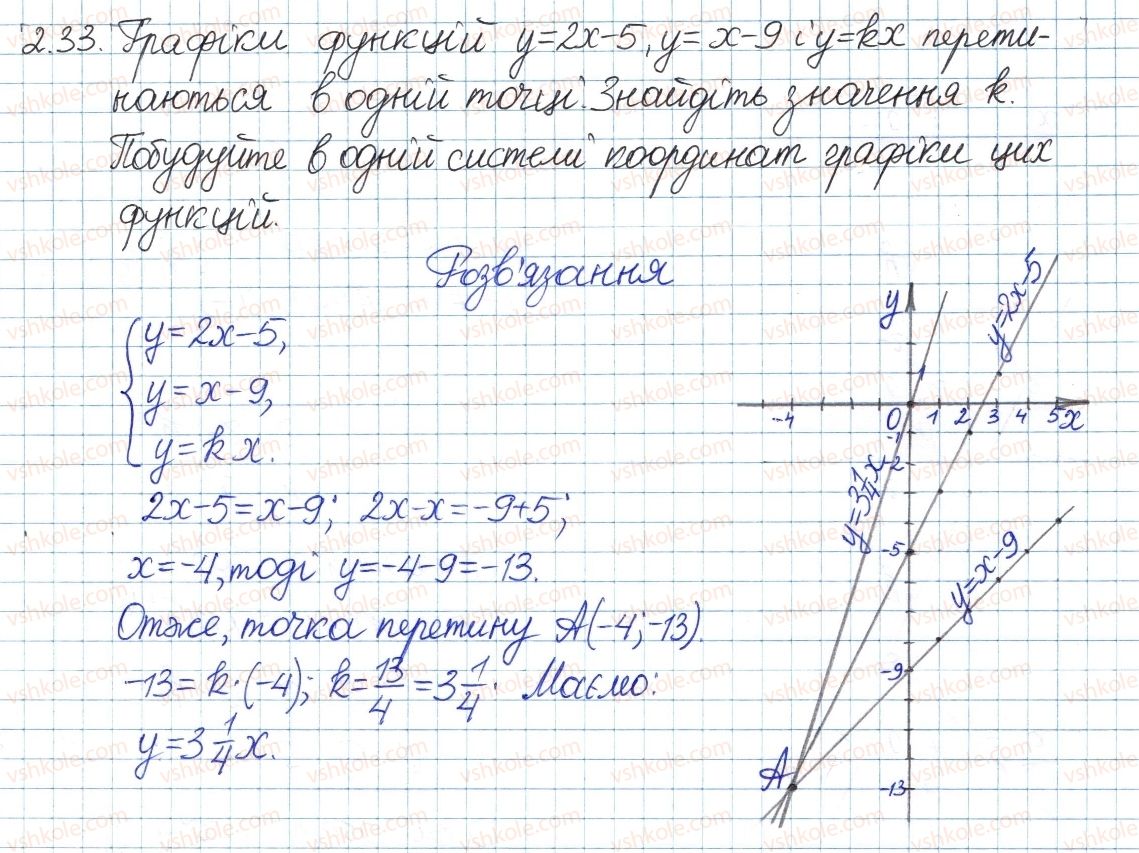 2.33. Графіки функцій y=2x-5, y=x-9 і y=kx перети-
наються в одній точці. Знайдіть значення k.
Побудуйте в одній системі координат графіки цих
функцій.
Розв'язання
y=2x-5,
y=x-9,
y=kx.
2x-5=x-9; 2x-x=-9+5;
x=-4, тоді y=-4-9=-13.
Отже, точка перетину A(-4;-13).
-13=k·(-4); k=13/4=3 1/4. Маємо:
y=3 1/4 x.
y
y=2x-5
1
-4 0 1 2 3 4 5 x
-1
-2
y=3 1/4 x
-5
y=x-9
-9
A
-13
vshkole.com